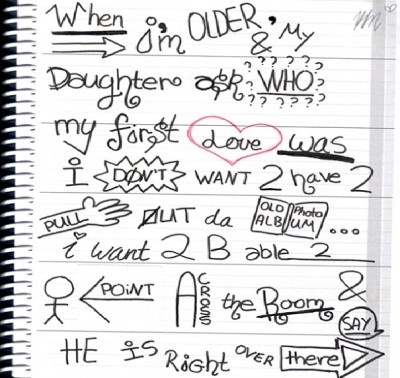 When i'm OLDER, & My
Daughters ask WHO
my first Love was
I DON'T WANT 2 have 2
PULL OUT da OLD Photo ALBUM ...
i want 2 B able 2
POINT ACROSS the Room &
SAY
HE is Right OVER there